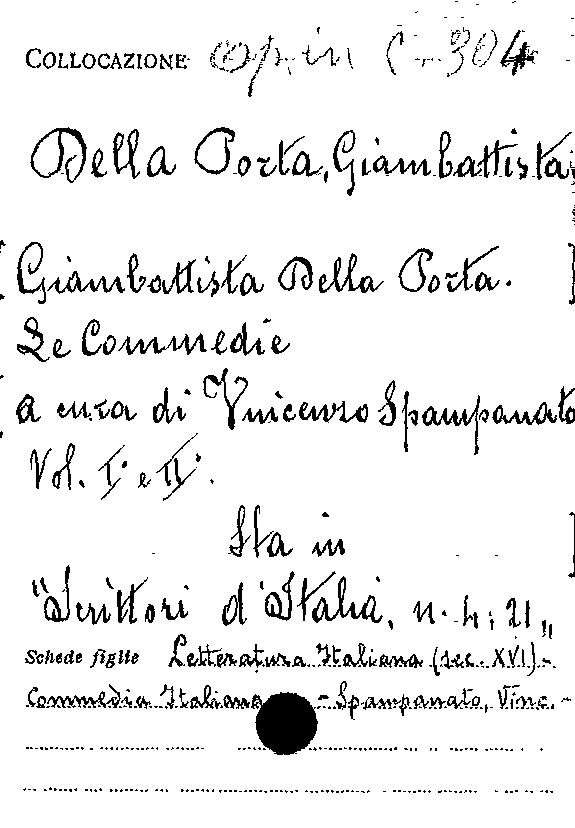 COLLOCAZIONE op. in C - 304
Della Porta, Giambattista
Giambattista Della Porta.
Le Commedie
a cura di Vincenzo Spampanato
Vol. I° e II°.
Sta in
"Scrittori d'Italia, n. 4; 21"
Schede figlie Letteratura Italiana (sec. XVI) -
Commedia Italiana - Spampanato, Vinc. -